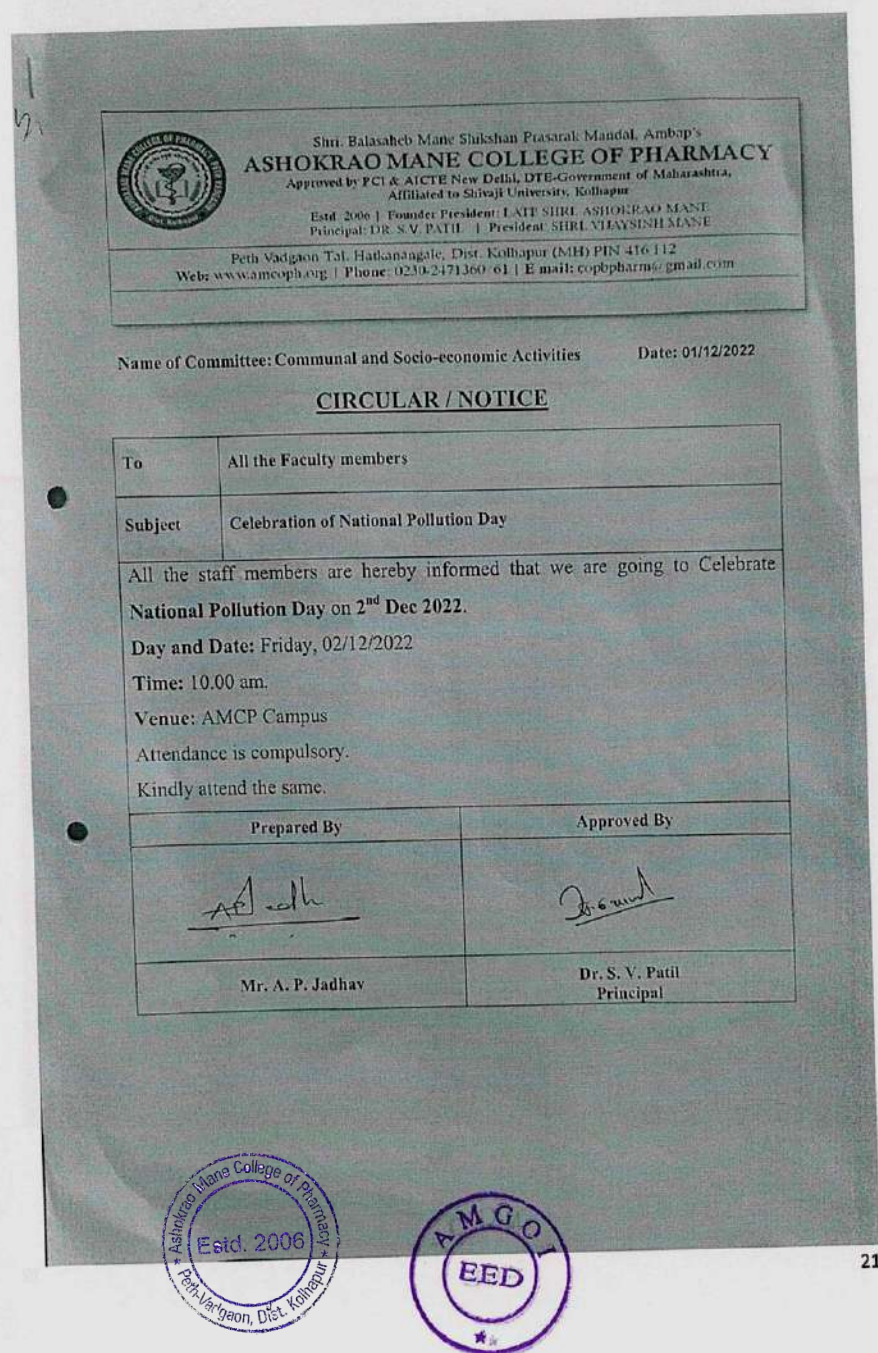 Shri. Balasaheb Mane Shikshan Prasarak Mandal, Ambap's
ASHOKRAO MANE COLLEGE OF PHARMACY
Approved by PCI & AICTE New Delhi, DTE-Government of Maharashtra,
Affiliated to Shivaji University, Kolhapur
Estd. 2006 | Founder President: LATE SHRI. ASHOKRAO MANE
Principal: DR. S.V. PATIL | President: SHRI. VIJAYSINH MANE
Peth Vadgaon Tal. Hatkanangale, Dist. Kolhapur (MH) PIN 416 112
Web: www.amcoph.org | Phone: 0230-2471360/61 | E mail: copbpharm@gmail.com
Name of Committee: Communal and Socio-economic Activities Date: 01/12/2022
CIRCULAR / NOTICE
To All the Faculty members
Subject Celebration of National Pollution Day
All the staff members are hereby informed that we are going to Celebrate
National Pollution Day on 2nd Dec 2022.
Day and Date: Friday, 02/12/2022
Time: 10.00 am.
Venue: AMCP Campus
Attendance is compulsory.
Kindly attend the same.
Prepared By Approved By
Mr. A. P. Jadhav Dr. S. V. Patil
Principal
Ashokrao Mane College of Pharmacy
Estd. 2006
Peth-Vadgaon, Dist. Kolhapur
AMGOI
EED
21